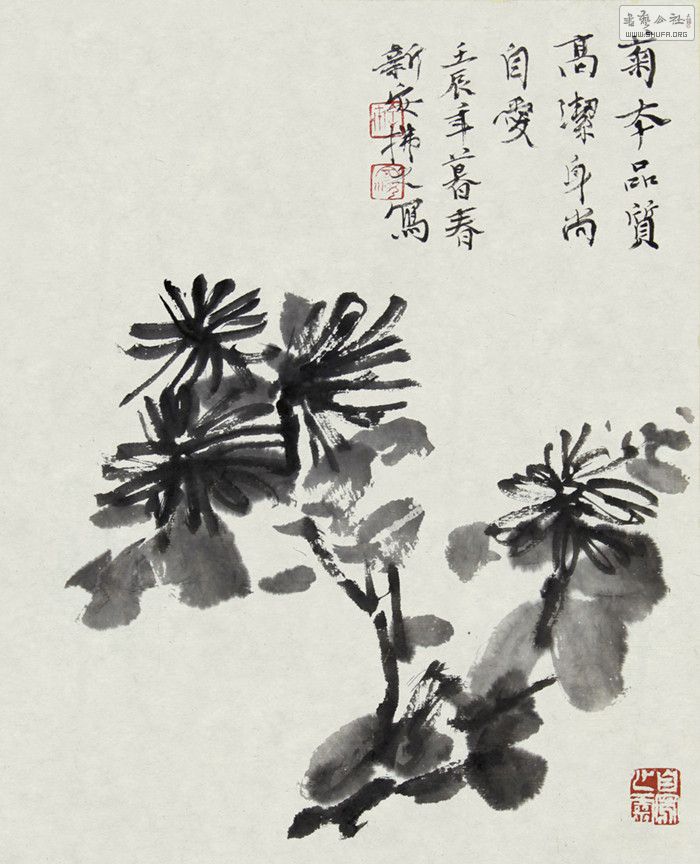 菊本品質
高潔身尚
自愛
壬辰年暮春
新安拂之寫
書藝公社
WWW.SHUFA.ORG